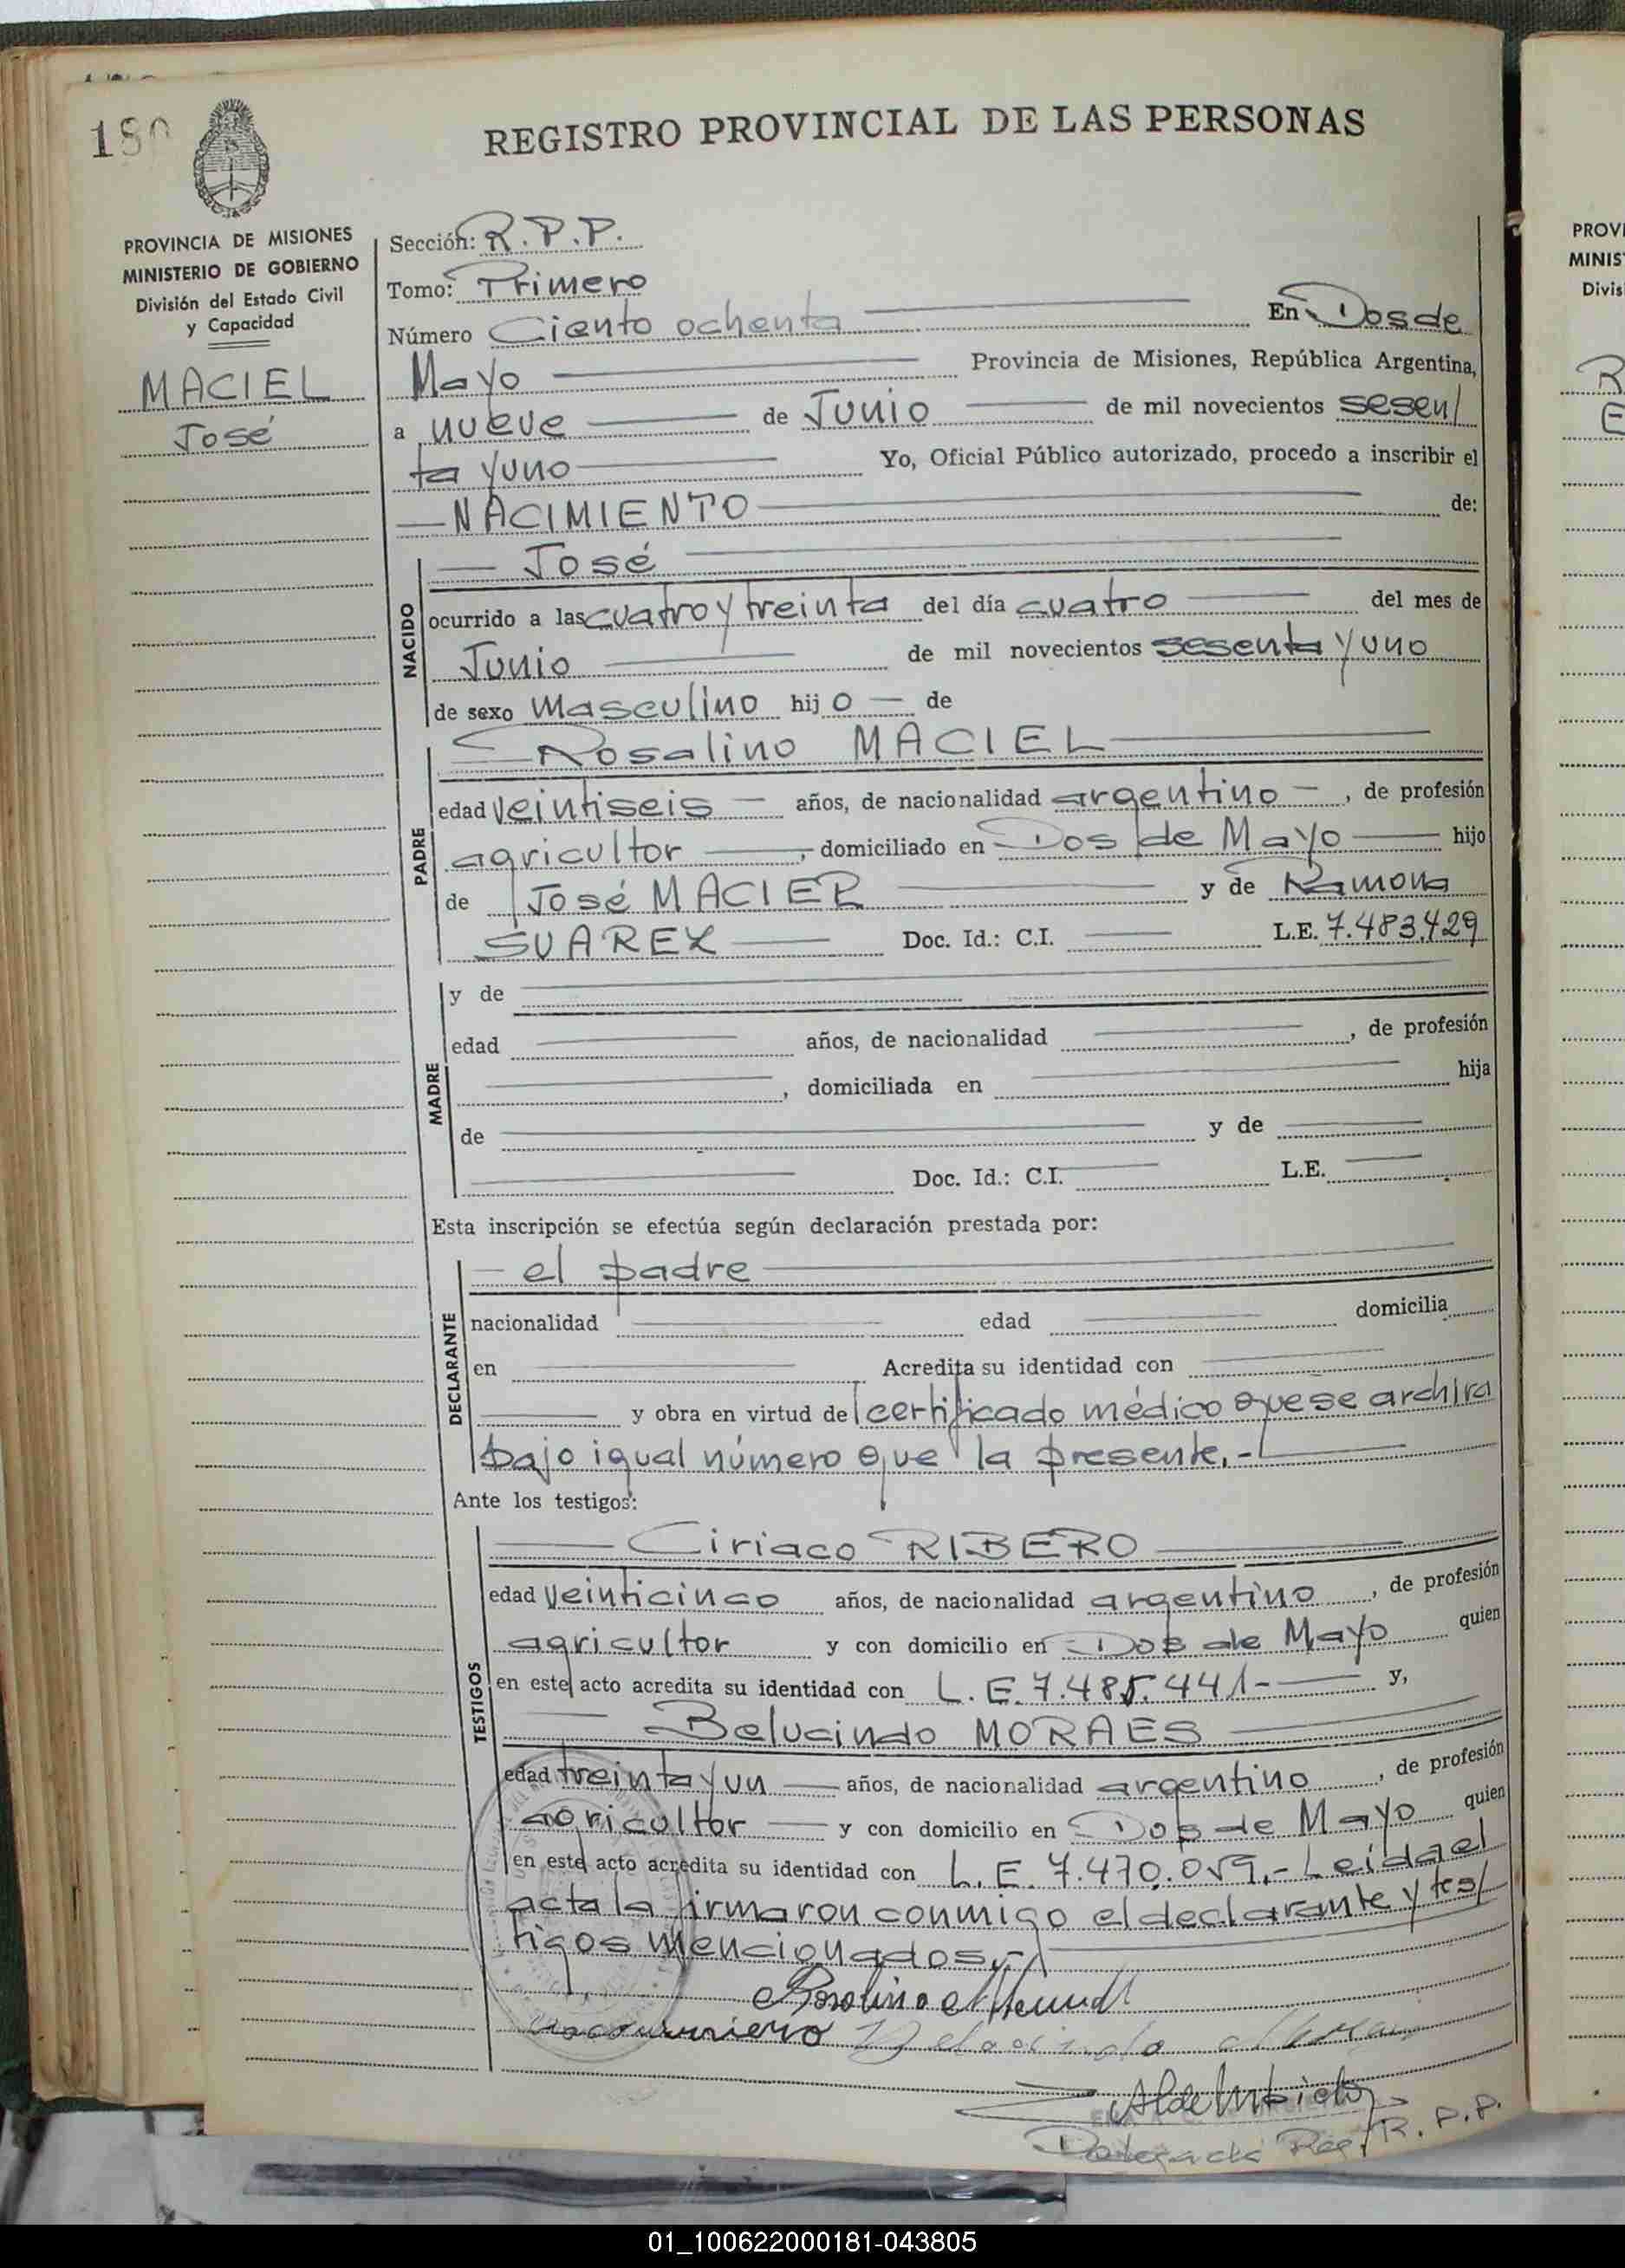 180
REGISTRO PROVINCIAL DE LAS PERSONAS
PROVINCIA DE MISIONES
MINISTERIO DE GOBIERNO
División del Estado Civil
y Capacidad
MACIEL
José
Sección: R.P.P.
Tomo: Primero
Número Ciento ochenta En Dos de
Mayo Provincia de Misiones, República Argentina,
a nueve de Junio de mil novecientos sesen/
ta y uno Yo, Oficial Público autorizado, procedo a inscribir el
NACIMIENTO de:
NACIDO
José
ocurrido a las cuatro y treinta del día cuatro del mes de
Junio de mil novecientos sesenta y uno
de sexo Masculino hijo de
PADRE
Rosalino MACIEL
edad veintiseis años, de nacionalidad argentino, de profesión
agricultor, domiciliado en Dos de Mayo hijo
de José MACIEL y de Ramona
SUAREZ Doc. Id.: C.I. L.E. 7.483.429
MADRE
y de
edad años, de nacionalidad , de profesión
, domiciliada en hija
de y de
Doc. Id.: C.I. L.E.
Esta inscripción se efectúa según declaración prestada por:
DECLARANTE
el padre
nacionalidad edad domicilia
en Acredita su identidad con
y obra en virtud de certificado médico que se archiva
bajo igual número que la presente.-
Ante los testigos:
TESTIGOS
Ciriaco RIBERO
edad veinticinco años, de nacionalidad argentino, de profesión
agricultor y con domicilio en Dos de Mayo quien
en este acto acredita su identidad con L.E. 7.485.441- y,
Belucindo MORAES
edad treinta y un años, de nacionalidad argentino, de profesión
agricultor y con domicilio en Dos de Mayo quien
en este acto acredita su identidad con L.E. 7.470.059.- Leida el
acta la firmaron conmigo el declarante y tes/
tigos mencionados.-
R.P.P.
PROVI
MINIS
Divis
R
E
01_100622000181-043805